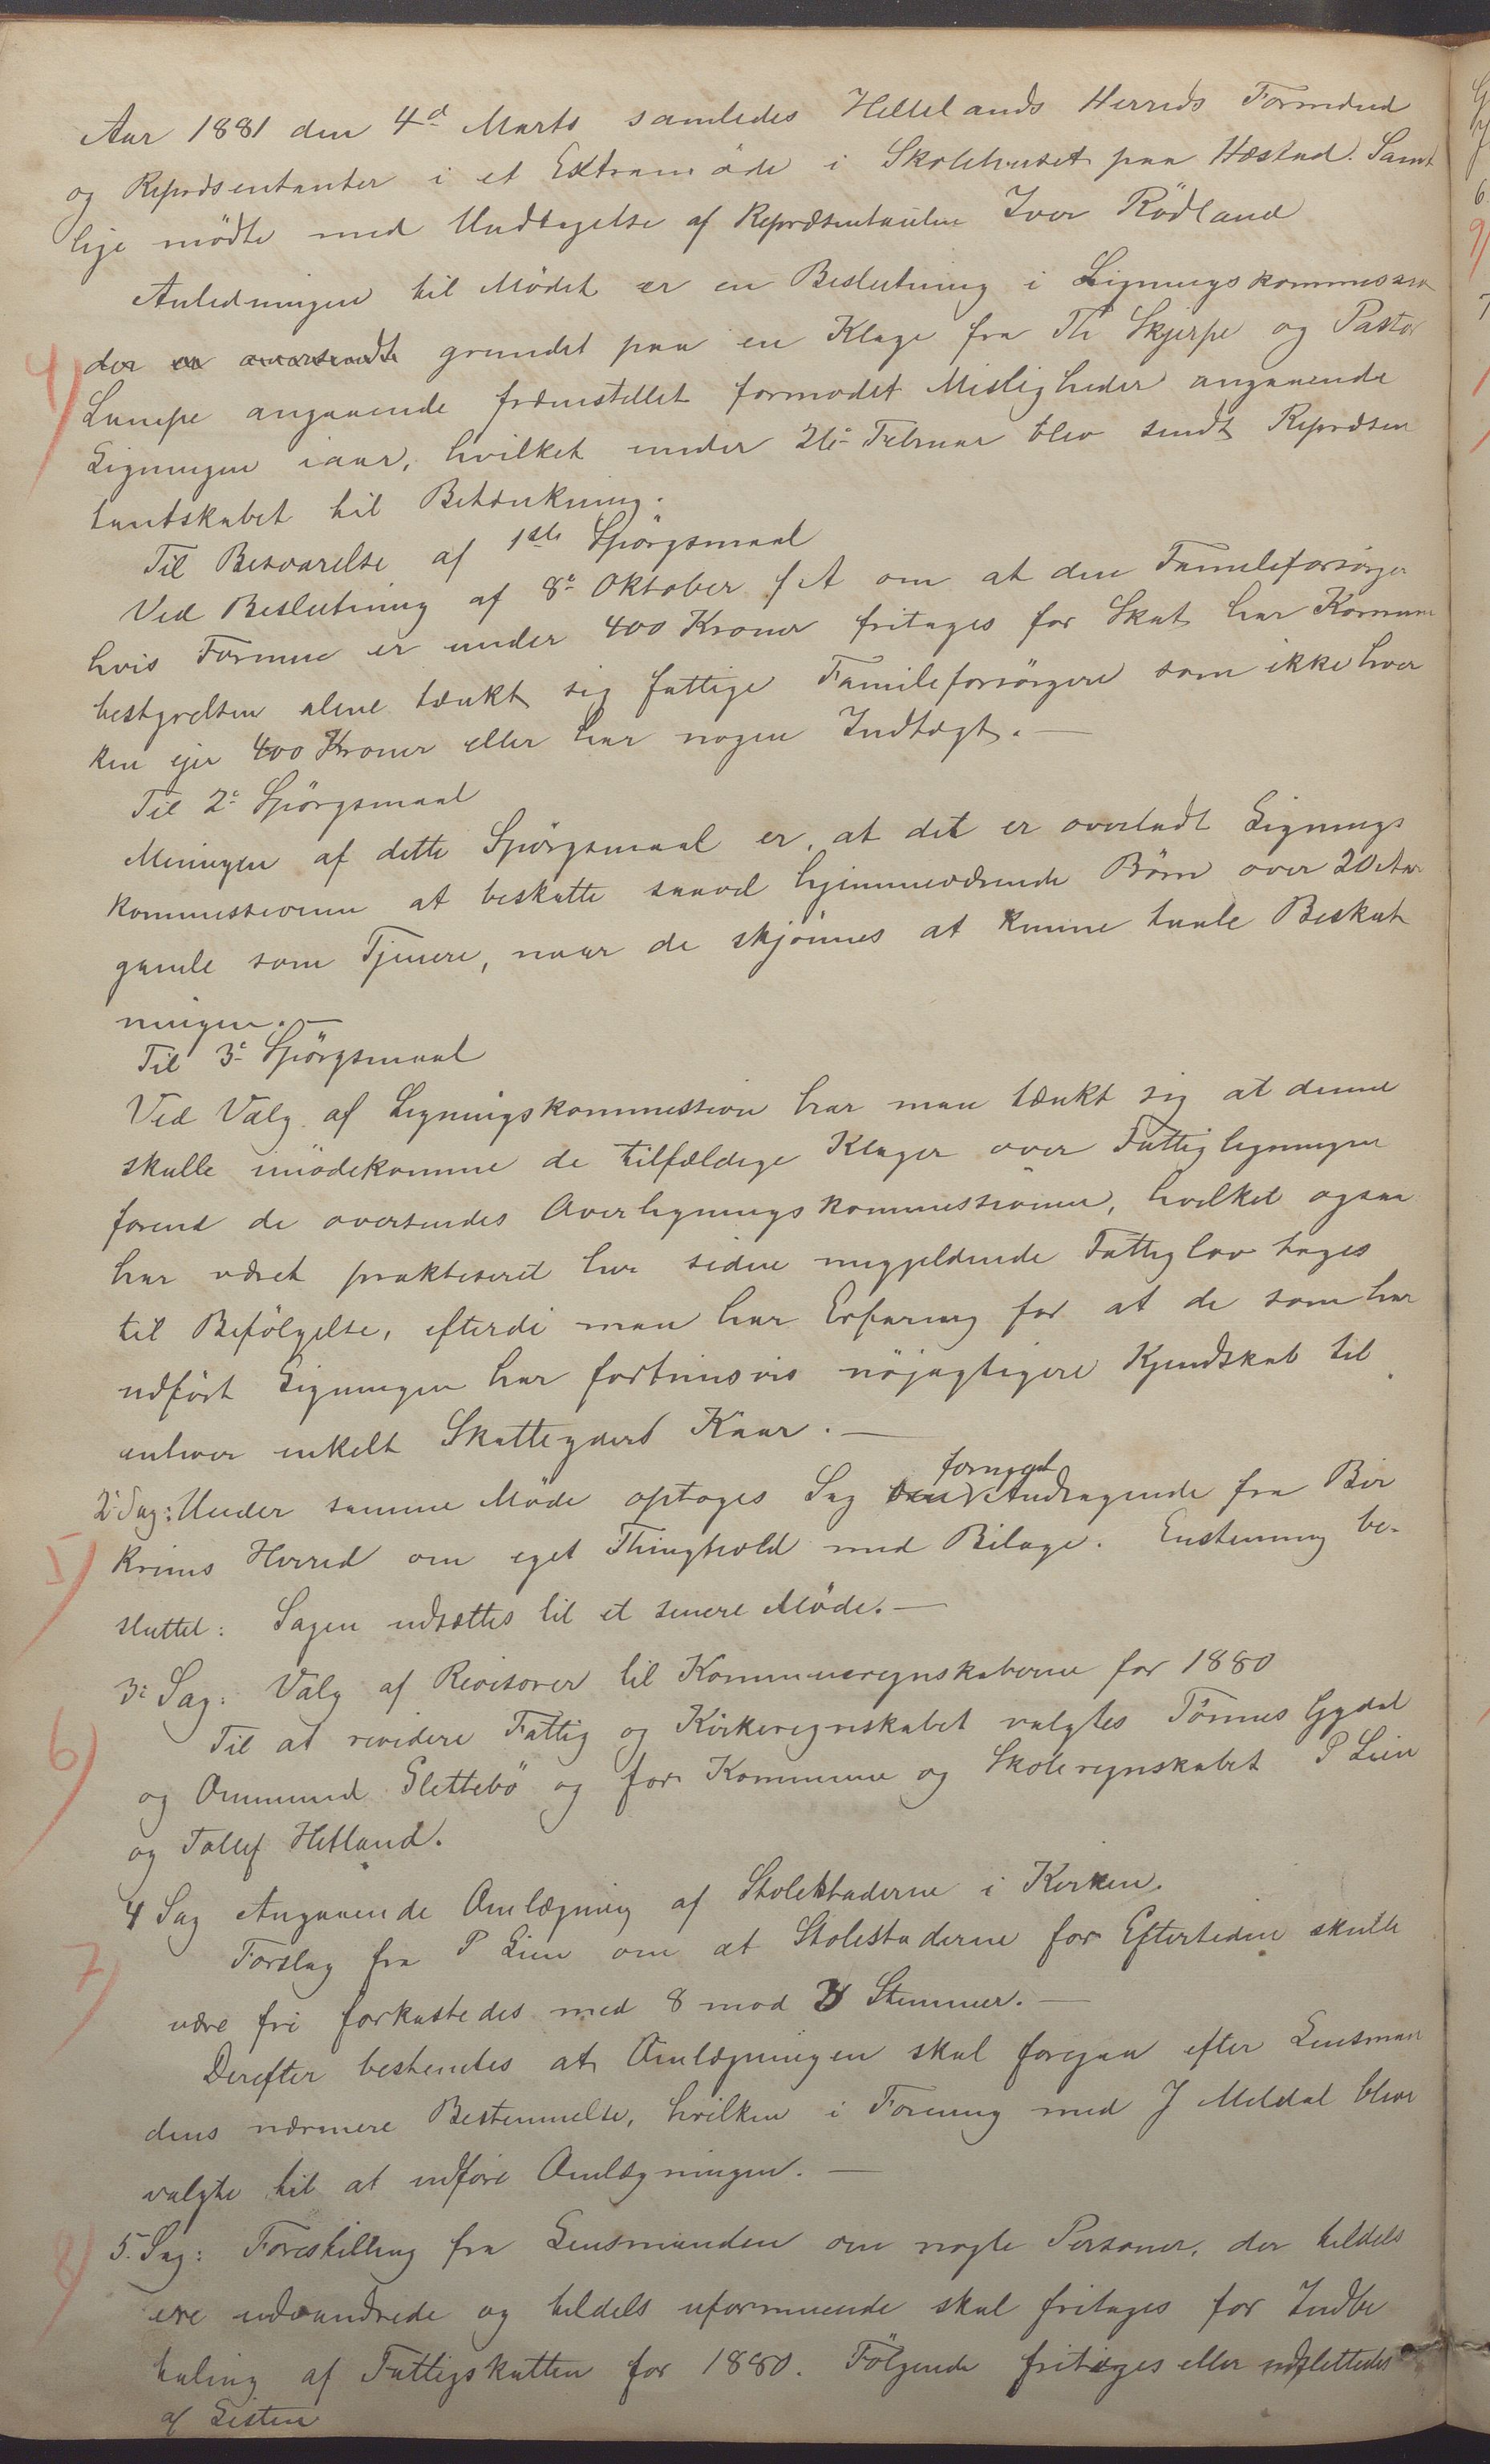 Aar 1881 den 4d Marts samledes Hellelands Herreds Formænd
og Repræsentanter i et Extramöde i Skolehuset paa Hæstad. Samt
lige mödte med Undtagelse af Repræsentanten Iver Rödland
Anledningen til Mödet er en Beslutning i Ligningskommissio
4) der en grundet paa en Klage fra Th Skjerpe og Pastor
Lampe angaaende fremstillet formodet Misligheder angaaende
Ligningen iaar, hvilket under 26de Februar blev sendt Repræsen
tantskabet til Betænkning.
Til Besvarelse af 1ste Spörgsmaal
Ved Beslutning af 8de Oktober f A om at den Familieforsörger
hvis Formue er under 400 Kroner fritages for Skat har Kommune
bestyrelsen alene tænkt sig fattige Familieforsörgere som ikke hver
ken ejer 400 Kroner eller har nogen Indtægt.—
Til 2de Spörgsmaal
Meningen af dette Spörgsmaal er, at det er overladt Lignings
kommissionen at beskatte saavel hjemmeværende Börn over 20 Aar
gamle som Tjenere, naar de skjönnes at kunne taale Beskat
ningen.—
Til 3de Spörgsmaal
Ved Valg af Ligningskommission har man tænkt sig at denne
skulle imödekomme de tilfældige Klager over Fattigligningen
forend de oversendes Overligningskommissionen, hvilket ogsaa
har været praktiseret her siden nugjeldende Fattiglov toges
til Befölgelse, efterdi man har Erfaring for at de som har
udfört Ligningen har fortrinsvis nöjagtigere Kjendskab til
enhver enkelt Skatteyders Kaar.—
fornyet
2de Sag: Under samme Möde optoges Sag Andragende fra Bir
5) krims Herred om eget Thinghold med Bilage. Enstemmig be-
sluttet: Sagen udsættes til et senere Möde.—
3de Sag: Valg af Revisorer til Kommuneregnskaberne for 1880
6) Til at revidere Fattig og Kirkeregnskabet valgtes Tönnes Gydal
og Ommund Slettebö og for Kommune og Skoleregnskabet P Lien
og Tollef Hetland.
4 Sag Angaaende Omlægning af Stolestaderne i Kirken.
7) Forslag fra P Lien om at Stolestaderne for Eftertiden skulle
være fri forkastedes med 8 mod 3 Stemmer.—
Derefter bestemtes at Omlægningen skal foregaa efter Lensman
dens nærmere Bestemmelse, hvilken i Forening med J Meldal bleve
valgte til at udföre Omlægningen.—
8) 5. Sag: Forestilling fra Lensmanden om nogle Personer, der tildels
ere udvandrede og tildels uformuende skal fritages for Indbe
taling af Fattigskatten for 1880. Fölgende fritages eller udslettedes
af Listen